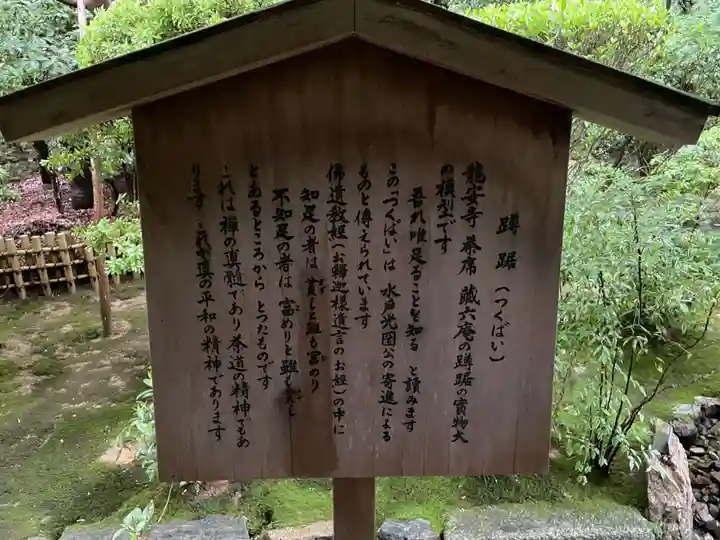 蹲踞（つくばい）
龍安寺茶席 藏六庵の蹲踞の實物大
の模型です
吾れ唯足ることを知る と讀みます
この「つくばい」は 水戸光圀公の寄進による
ものと傳えられています
佛遺教經（お釋迦様遺言のお經）の中に
知足の者は 貧しと雖も富めり
不知足の者は 富めりと雖も貧し
とあるところから とつたものです
これは禅の真髄であり茶道の精神でもあ
ります これや真の平和の精神であります